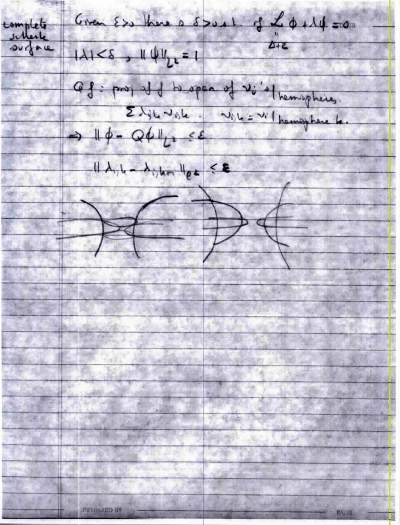 complete
surface
Given ε>0 there is δ>0 s.t. if L φ + λφ = 0
Δ+2
|λ|<δ, ‖φ‖_{L²} = 1
Qf : proj of f to span of ν_i's|hemispheres.
Σ λ_{i,k} ν_{i,k} . ν_{i,k} = ν_i|hemisphere k.
⇒ ‖φ - Qφ‖_{L²} ≤ ε
‖λ_{i,k} - λ_{i,k+1}‖_{ℓ²} ≤ ε